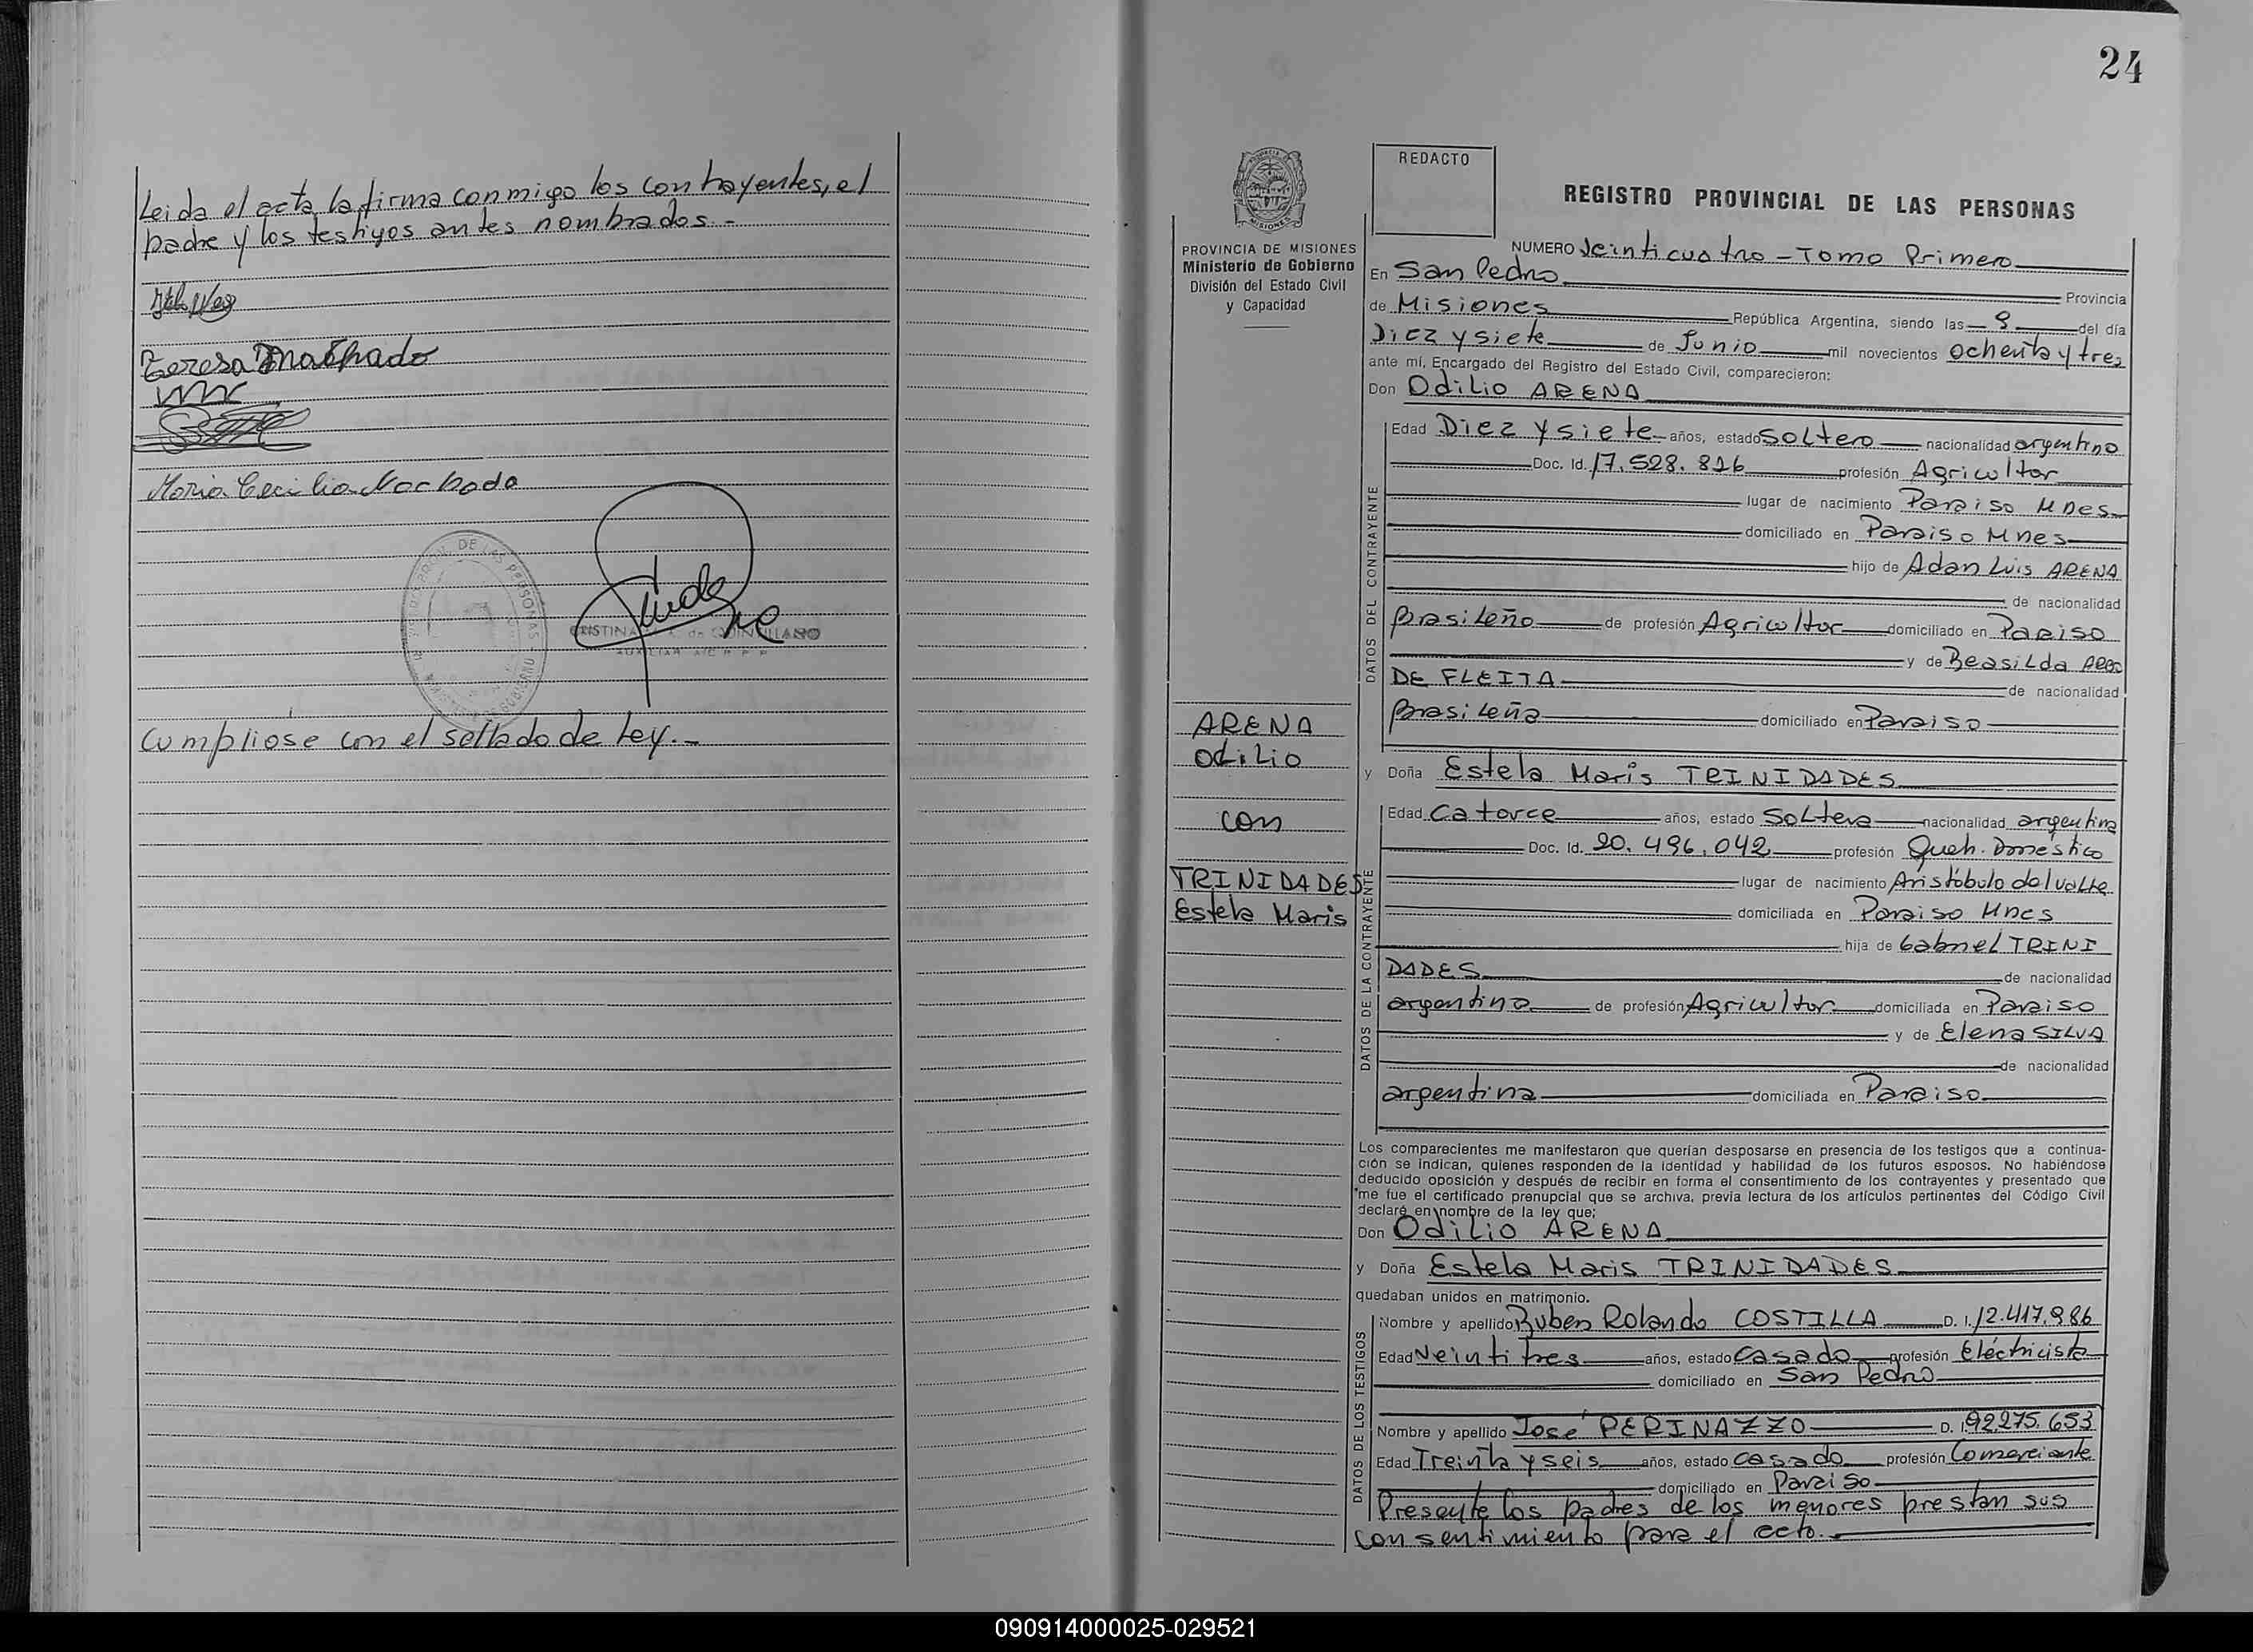 Leida el acta, la firma conmigo los contrayentes, el
padre y los testigos antes nombrados.-
Teresa Machado
Maria Cecilia Machado
CRISTINA de QUINTILLANO
Cumpliose con el sellado de Ley.-
24
REDACTO
REGISTRO PROVINCIAL DE LAS PERSONAS
PROVINCIA DE MISIONES
Ministerio de Gobierno
División del Estado Civil
y Capacidad
NUMERO Veinticuatro - Tomo Primero
En San Pedro Provincia
de Misiones República Argentina, siendo las 9 del día
Diez y siete de Junio mil novecientos ochenta y tres
ante mí, Encargado del Registro del Estado Civil, comparecieron:
Don Odilio ARENA
DATOS DEL CONTRAYENTE
Edad Diez y siete años, estado soltero nacionalidad argentino
Doc. Id. 17.528.816 profesión Agricultor
lugar de nacimiento Paraiso Mnes
domiciliado en Paraiso Mnes
hijo de Adan Luis ARENA
de nacionalidad
Brasileño de profesión Agricultor domiciliado en Paraiso
y de Beasilda
DE FLEITA de nacionalidad
Brasileña domiciliado en Paraiso
ARENA
Odilio
con
TRINIDADES
Estela Maris
y Doña Estela Maris TRINIDADES
DATOS DE LA CONTRAYENTE
Edad Catorce años, estado Soltera nacionalidad argentina
Doc. Id. 20.496.042 profesión Queh. Doméstico
lugar de nacimiento Aristóbulo del Valle
domiciliada en Paraiso Mnes
hija de Gabriel TRINI
DADES de nacionalidad
argentino de profesión Agricultor domiciliada en Paraiso
y de Elena SILVA
de nacionalidad
argentina domiciliada en Paraiso
Los comparecientes me manifestaron que querían desposarse en presencia de los testigos que a continua-
ción se indican, quienes responden de la identidad y habilidad de los futuros esposos. No habiéndose
deducido oposición y después de recibir en forma el consentimiento de los contrayentes y presentado que
me fue el certificado prenupcial que se archiva, previa lectura de los artículos pertinentes del Código Civil
declaré en nombre de la ley que:
Don Odilio ARENA
y Doña Estela Maris TRINIDADES
quedaban unidos en matrimonio.
DATOS DE LOS TESTIGOS
Nombre y apellido Ruben Rolando COSTILLA D. I. 12.417.986
Edad Veintitres años, estado Casado profesión Eléctricista
domiciliado en San Pedro
Nombre y apellido José PERINAZZO D. I. 92.275.653
Edad Treinta y seis años, estado casado profesión Comerciante
domiciliado en Paraiso
Presente los padres de los menores prestan sus
consentimiento para el acto.-
090914000025-029521